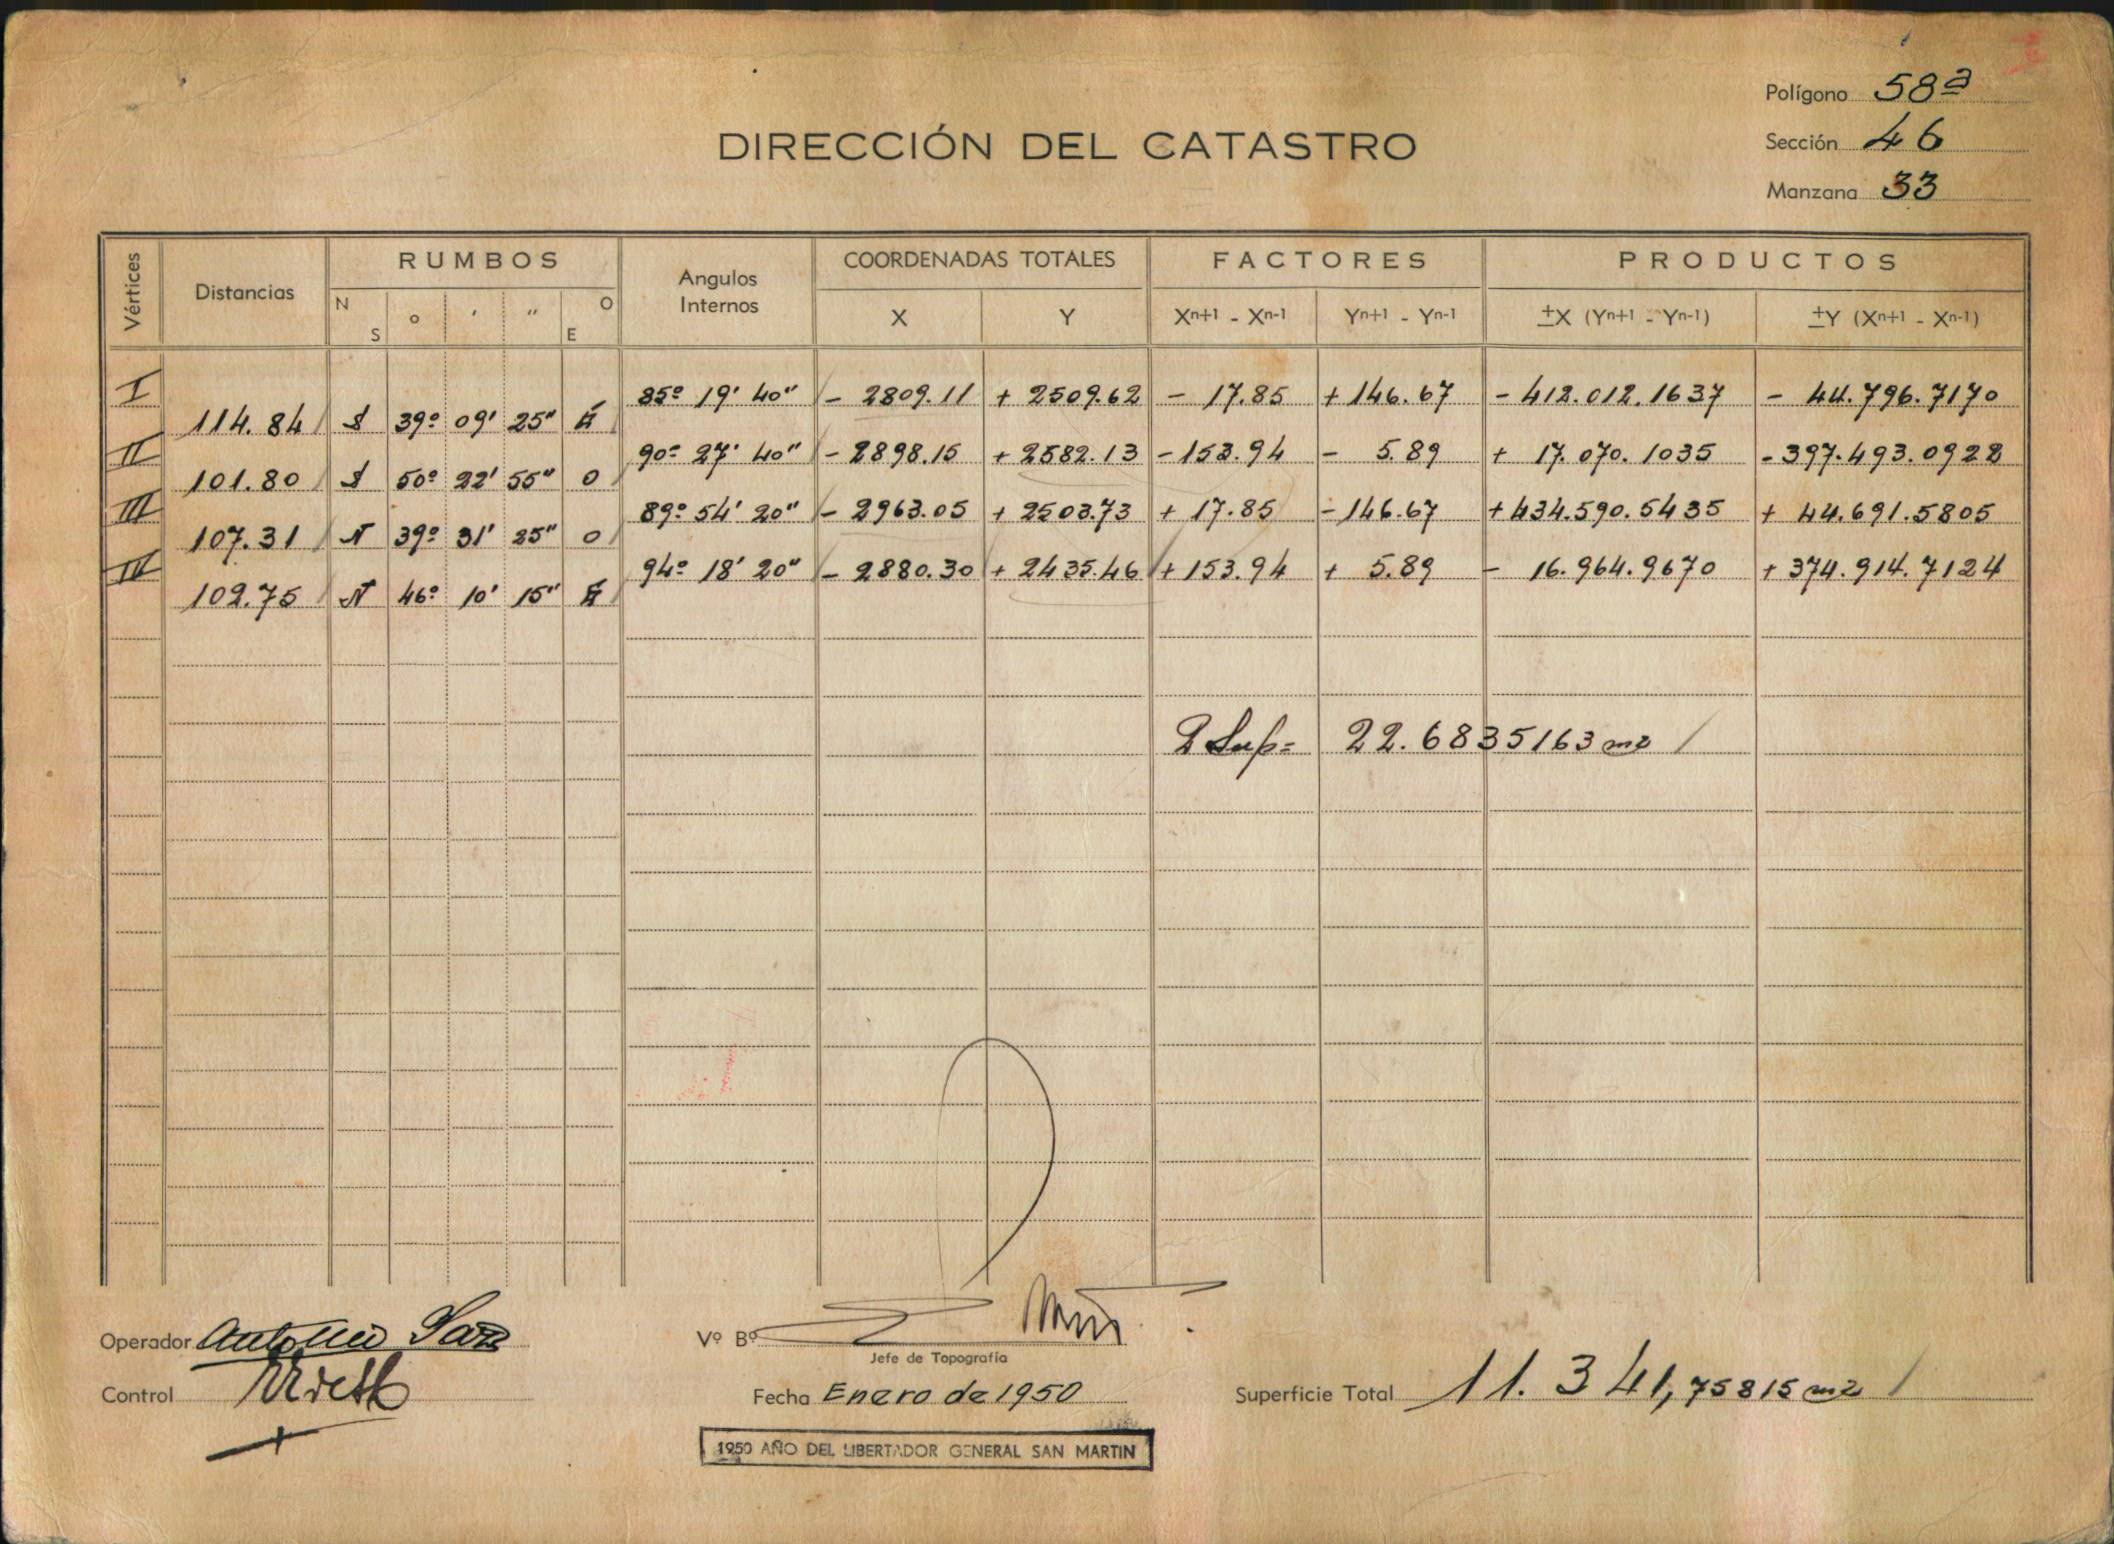 Polígono 58ª
DIRECCIÓN DEL CATASTRO
Sección 46
Manzana 33
Vértices Distancias RUMBOS Angulos Internos COORDENADAS TOTALES FACTORES PRODUCTOS
N S o ' " O E X Y Xn+1 - Xn-1 Yn+1 - Yn-1 ±X (Yn+1 - Yn-1) ±Y (Xn+1 - Xn-1)
I 85º 19' 40" - 2809.11 + 2509.62 - 17.85 + 146.67 - 412.012.1637 - 44.796.7170
114.84 S 39º 09' 25" E
II 90º 27' 40" - 2898.15 + 2582.13 - 153.94 - 5.89 + 17.070.1035 - 397.493.0928
101.80 S 50º 22' 55" O
III 89º 54' 20" - 2963.05 + 2503.73 + 17.85 - 146.67 + 434.590.5435 + 44.691.5805
107.31 N 39º 31' 25" O
IV 94º 18' 20" - 2880.30 + 2435.46 + 153.94 + 5.89 - 16.964.9670 + 374.914.7124
102.75 N 46º 10' 15" E
2 Sup= 22.6835163 m2
Operador Antonio
Vº Bº
Jefe de Topografía
Control
Fecha Enero de 1950
Superficie Total 11.341,75815 m2
1950 AÑO DEL LIBERTADOR GENERAL SAN MARTIN